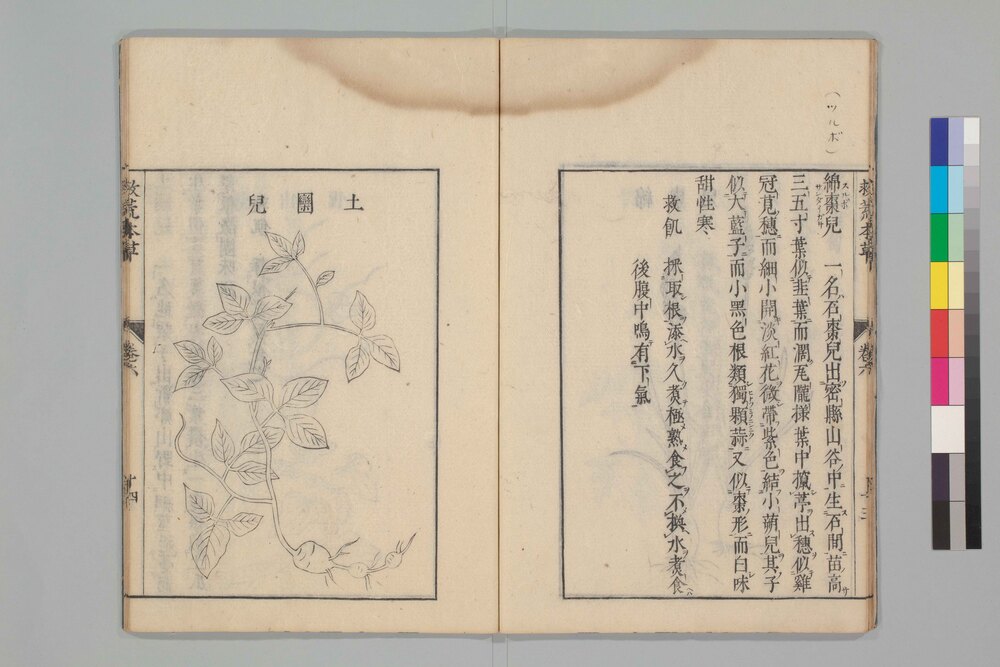 (ツルボ)
綿棗兒 一名石棗兒出密縣山谷中生石間苗高
三五寸葉似韭葉而濶瓦隴樣葉中攛葶出穗似雞
冠莧穗而細小開淡紅花微帶紫色結小蒴兒其子
似大藍子而小黑色根類獨顆蒜又似棗形而白味
甜性寒
救飢 採取根添水久煮極熟食之不換水煮食
後腹中鳴有下氣
土圞兒
救荒本草
卷六
十四